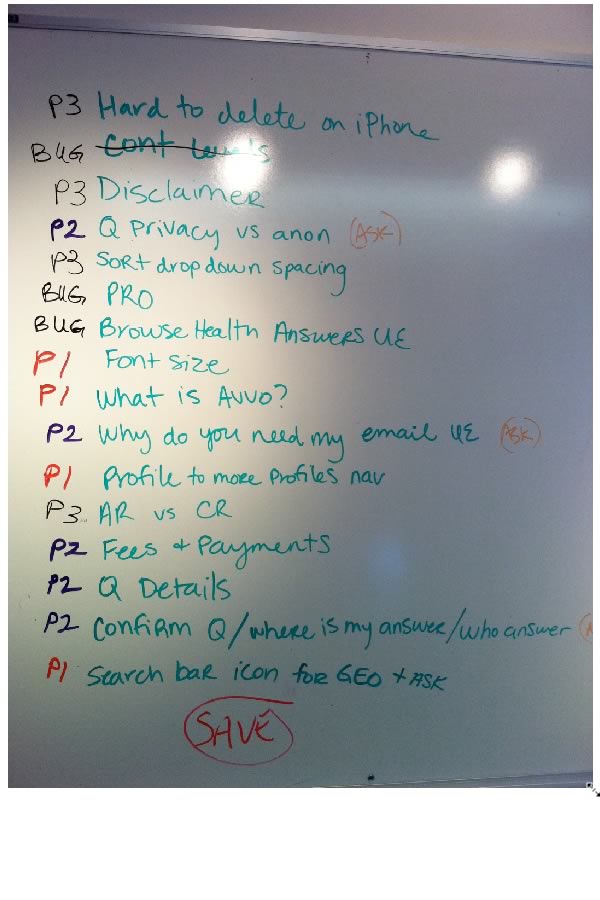 P3 Hard to delete on iPhone
BUG cont
P3 Disclaimer
P2 Q Privacy vs anon (ASK)
P3 Sort dropdown spacing
BUG PRO
BUG Browse Health Answers UE
P1 Font size
P1 What is Avvo?
P2 Why do you need my email UE (ASK)
P1 Profile to more profiles nav
P3 AR vs CR
P2 Fees + Payments
P2 Q Details
P2 Confirm Q/where is my answer/who answer
P1 Search bar icon for GEO + ASK
SAVE